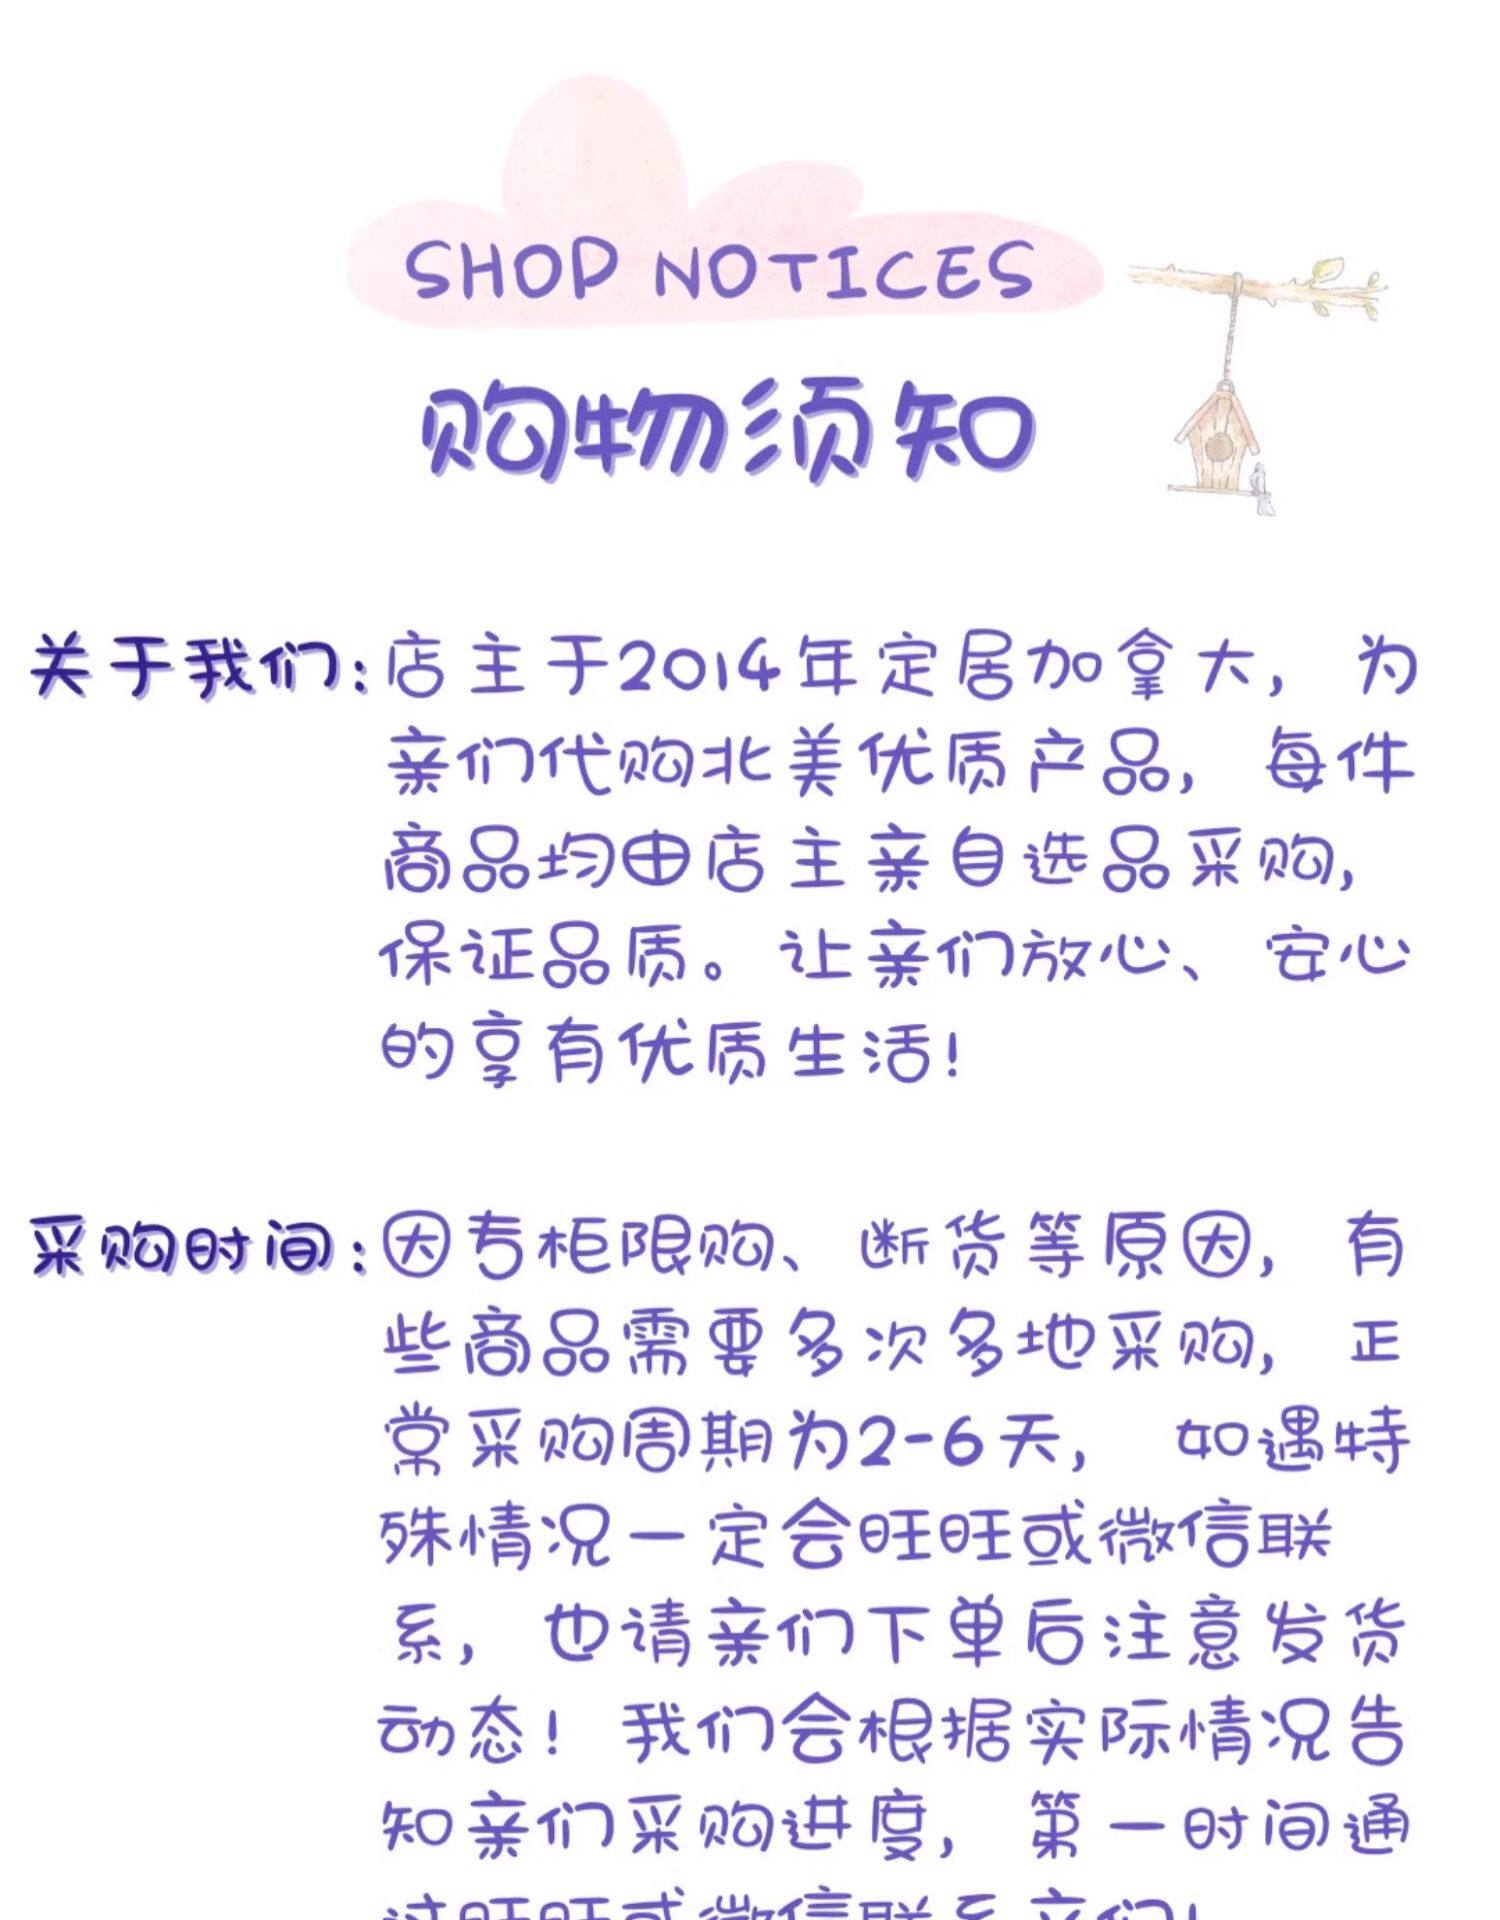 SHOP NOTICES
购物须知
关于我们:店主于2014年定居加拿大，为
亲们代购北美优质产品，每件
商品均由店主亲自选品采购，
保证品质。让亲们放心、安心
的享有优质生活！
采购时间:因专柜限购、断货等原因，有
些商品需要多次多地采购，正
常采购周期为2-6天，如遇特
殊情况一定会旺旺或微信联
系，也请亲们下单后注意发货
动态！我们会根据实际情况告
知亲们采购进度，第一时间通
过旺旺或微信联系亲们！